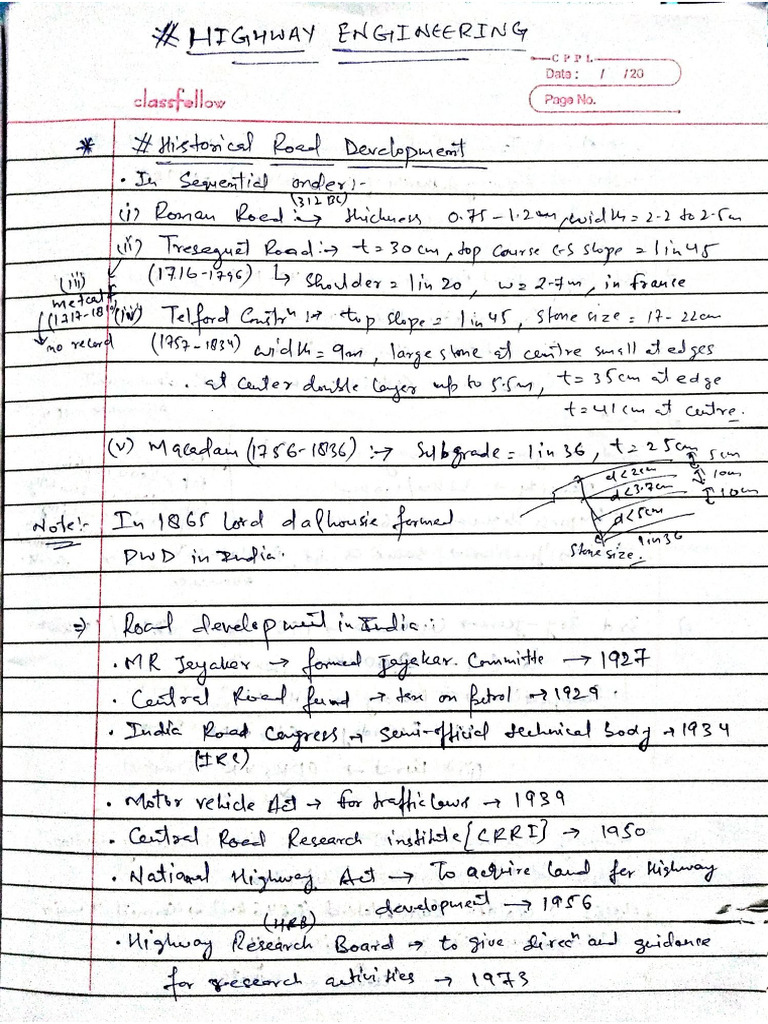 # HIGHWAY ENGINEERING
CPPL
Date : / /20
classfellow
Page No.
* # Historical Road Development
• In Sequential order :-
(312 BC)
(i) Roman Road :-> thickness 0.75 - 1.2 m, width = 2.2 to 2.5m
(ii) Tresaguet Road :-> t = 30 cm, top course C-S slope = 1 in 45
(1716-1796) ↳ Shoulder = 1 in 20, w = 2.7m, in france
(iii)
metcalf
(1717-1810)
↳ no record
(iv) Telford Constrⁿ :-> top slope = 1 in 45, Stone size = 17-22cm
(1757-1834) width = 9m, large stone at centre small at edges
. at center double layer up to 5.5m, t = 35 cm at edge
t = 41 cm at centre.
(v) Macadam (1756-1836) :-> Subgrade = 1 in 36, t = 25 cm
5cm
d<2cm
10cm
d<3.7cm
10cm
d<5cm
1 in 36
Stone size.
Note:- In 1865 Lord dalhousie formed
PWD in India.
=> Road development in India :
• MR Jayakar → formed Jayakar Committe → 1927
• Central Road fund → tax on petrol → 1929 .
• India Road Congress → semi-official technical body → 1934
(IRC)
• Motor vehicle Act → for traffic laws → 1939
• Central Road Research institute [CRRI] → 1950
• National Highway Act → To acquire land for Highway
development → 1956
(HRB)
• Highway Research Board → to give direcⁿ and guidance
for research activities → 1973